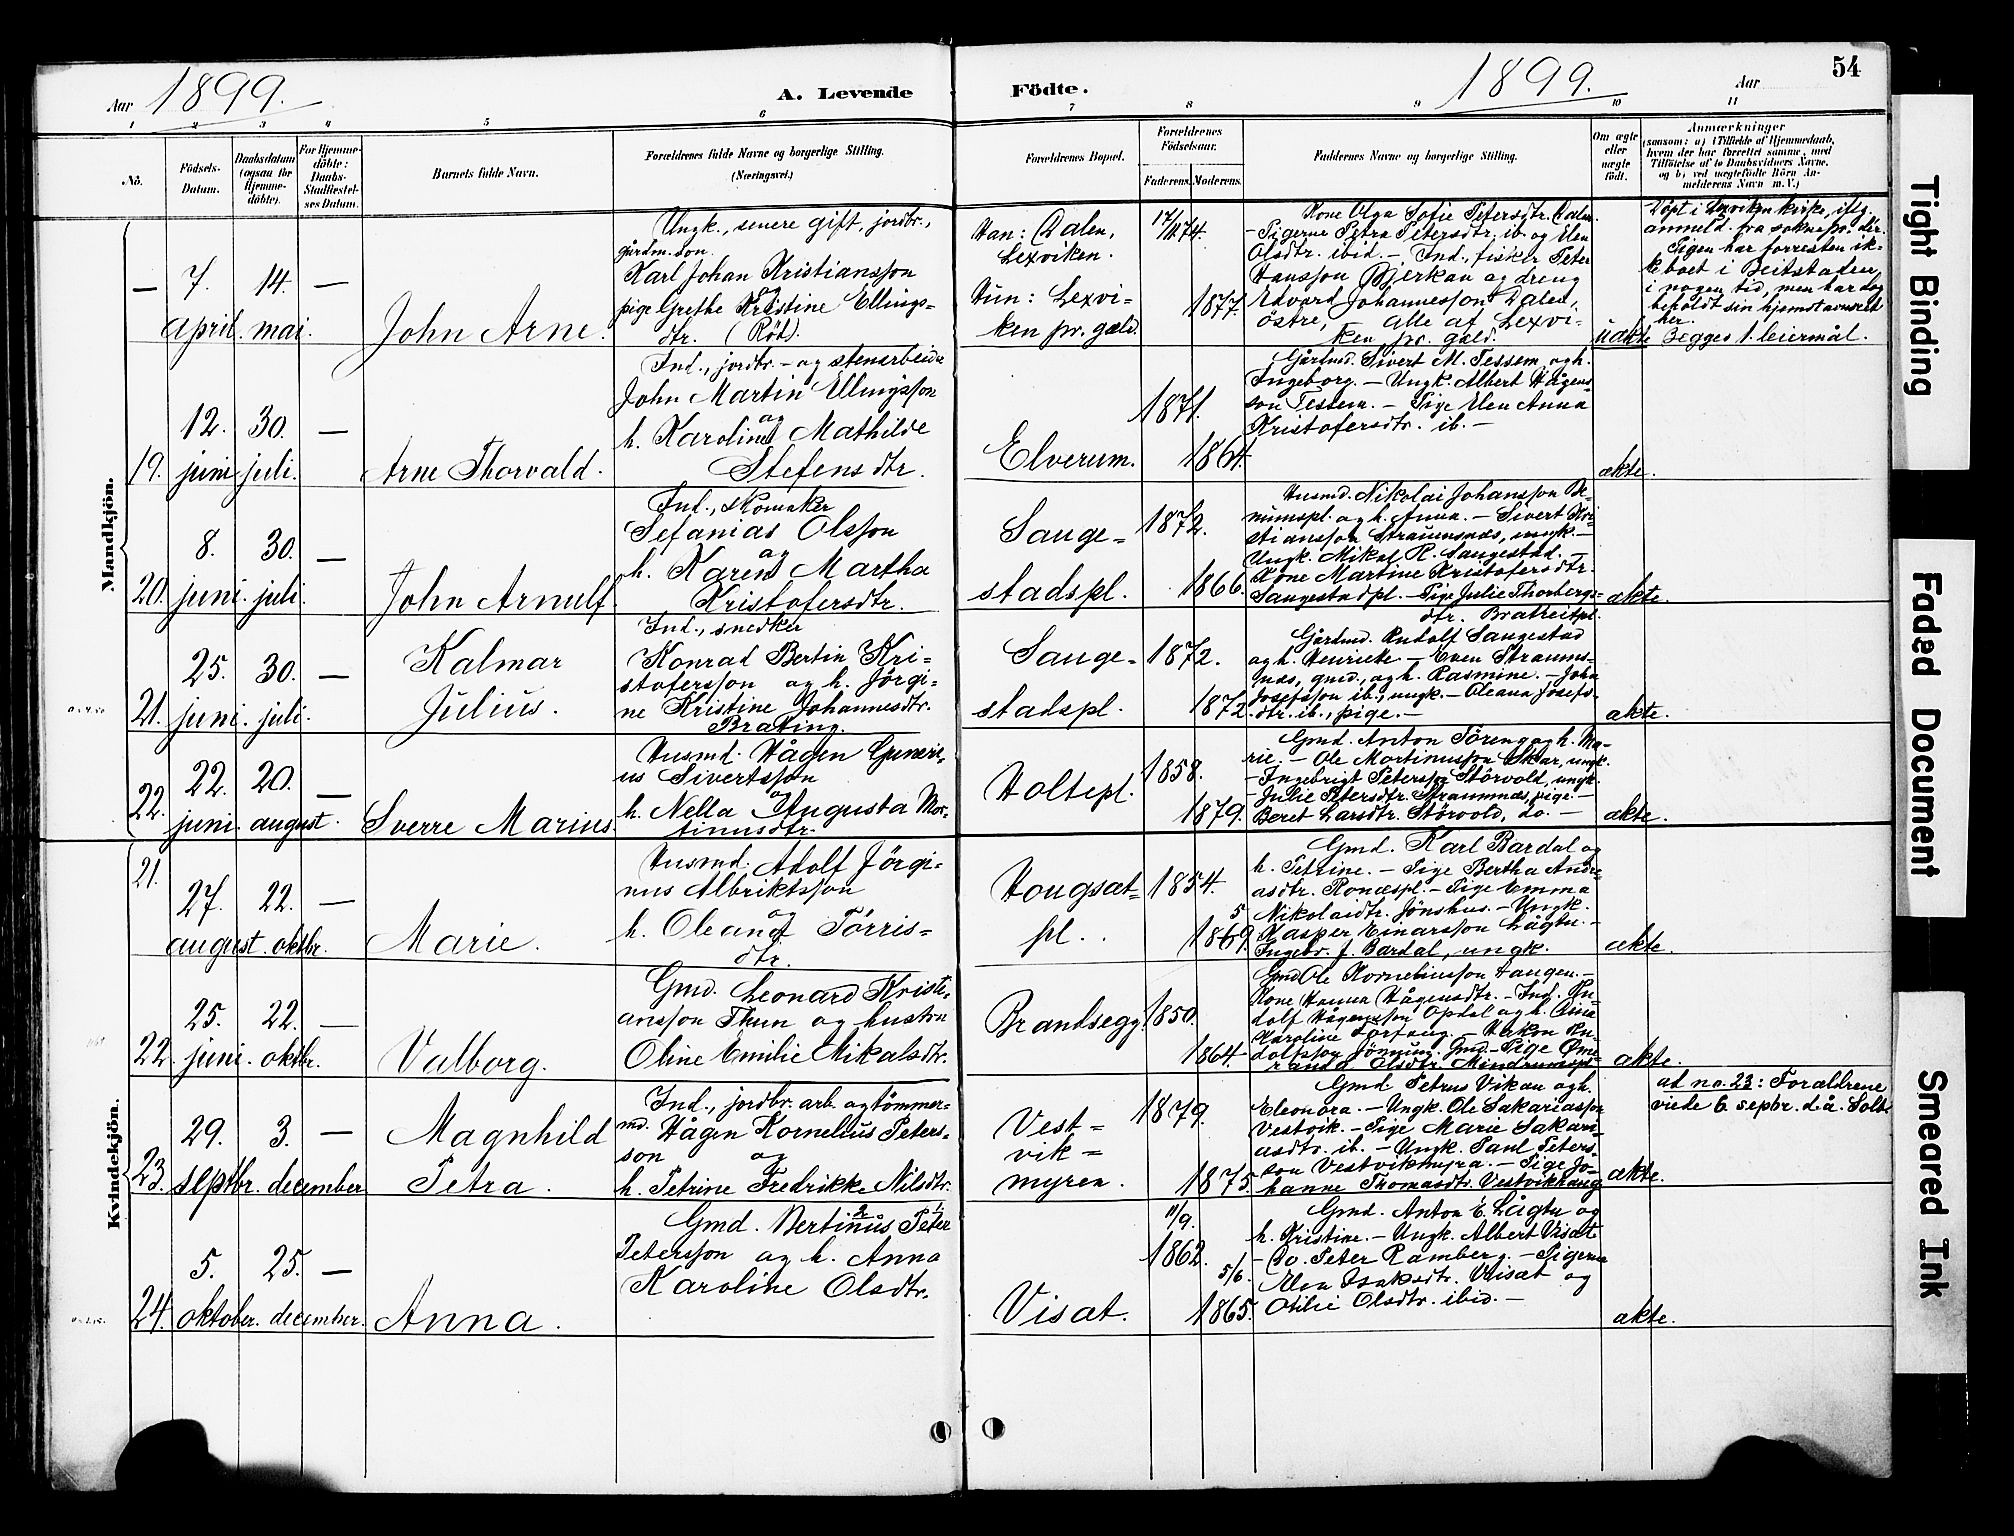 Aar 1899. A. Levende Födte. 1899. Aar 54
1 2 3 4 5 6 7 8 9 10 11
No.
Födsels-
Datum.
Daabsdatum
(ogsaa for
Hjemme-
döbte).
For Hjemme-
döbte:
Daabs-
Stadfæstel-
ses Datum.
Barnets fulde Navn.
Forældrenes fulde Navne og borgerlige Stilling.
(Næringsvei.)
Forældrenes Bopæl.
Forældrenes
Födselsaar.
Faderens. Moderens.
Faddernes Navne og borgerlige Stilling.
Om ægte
eller
uægte
födt.
Anmærkninger
(saasom: a) i Tilfælde af Hjemmedaab,
hvem der har forrettet samme, med
Tilföielse af to Daabsvidners Navne,
og b) ved uægtefödte Börn An-
melderens Navn m. V.)
Mandkjön.
— 7. april. 14. mai. —
John Arne.
Ungk., senere gift, jordbr.,
gårdm. son.
Karl Johan Kristiansson
og
pige Grethe Kristine Ellings-
dtr. (Röt).
Han: Dalen,
Lexviken.
Hun: Lexvi-
ken pr. gæld.
1874.
1877.
Kone Olga Sofie Petersdtr. Dalen.
- Pigerne Petra Petersdtr. ib. og Elen
Olsdtr. ibid. - Ind., fisker Peter
Hansson Bjerkan og dreng
Edvard Johannesson Dalen,
östre, — alle af Lexvi-
ken pr. gæld.
uækte
Döpt i Lexviken kirke, iflg.
anmeld. fra soknepr. der.
Pigen har forresten ik-
ke boet i Beitstaden
i nogen tid, men har dog
beholdt sin hjemstavnsret
her.
Begges 1. leiermål.
19. 12. juni 30. juli. —
Arne Thorvald.
Ind., jordbr. - og stenarbeider
John Martin Ellingsson
og
h. Karoline Mathilde
Stefensdtr.
Elverum.
1871.
1864.
Gårdmd. Sivert M. Tessem og h.
Ingeborg. - Ungk. Albert Hågens-
son Tessem. - Pige Elen Anna
Kristofersdtr. ib. -
ækte.
20. 8. juni. 30. juli. —
John Arnulf.
Ind., skomaker
Sefanias Olsson
og
h. Karen Martha
Kristofersdtr.
Sauge-
stadspl.
1872.
1866.
Husmd. Nikolai Johansson De-
numspl. og h. Anna. - Sivert Kri-
stiansson Straumsnæs, ungk. -
Ungk. Mikal R. Saugestad. -
Kone Martine Kristofersdtr.
Saugestadpl. - Pige Julie Thorbergs-
dtr. Bratreitpl.
ækte.
21. 25. juni. 30. juli. —
Kalmar
Julius.
Ind., snedker
Konrad Bertin Kri-
stofersson og h. Jörgi-
ne Kristine Johannesdtr.
Brating.
Sauge-
stadspl.
1872.
1872.
Gårdmd. Rudolf Saugestad
og h. Henriete - Even Straums-
næs, gmd., og h. Rasmine. - John
Josefsson ib., ungk. - Oleana Josefs-
dtr. ib., pige. -
ækte.
22. 22. juni. 20. august. —
Sverre Marius.
Husmd. Hågen Generi-
us Sivertsson
og
h. Nella Augusta Mor-
tinusdtr.
Holtepl.
1858.
1879.
Gmd. Anton Föreng og h. Ma-
rie. - Ole Mortinusson Skar, ungk.
- Ingebrigt Petersson Störvold, ungk.
- Julie Petersdtr. Straumnæs, pige. -
Beret Larsdtr. Störvold, do. -
ækte.
Kvindekjön.
21. 27. august. 22. oktbr. —
Marie.
Husmd. Adolf Jörgi-
nus Albriktsson
og
h. Oleana Törris-
dtr.
Hougsæt-
pl..
1854.
1869.
Gmd. Karl Bardal og
h. Petrine. - Pige Bertha Andre-
asdtr. Ronæspl. - Pige Emma
Nikolaidtr. Jönshus. - Ungk.
Kasper Einarsson Lågtu. -
Ingebr. J. Bardal, ungk.
ækte.
22. 25. juni. 22. oktbr. —
Valborg.
Gmd. Leonard Kristi-
ansson Thun og hustru
Oline Emilie Mikalsdtr.
Brandsegg.
1850.
1864.
Gmd Ole Kornelinsson Haugen. -
Kone Hanna Hågensdtr. - Ind. Ru-
dolf Hågensson Opdal og h. Oline
Karoline Forfang. - Håkon Ru-
dolfsson Jönnum. Gmd. - Pige Ome-
randa Olsdtr. Mindrumspl.
ækte.
23. 29. septbr. 3. december —
Magnhild
Petra.
Ind., jordbr. arb. og tömmer-
md. Hågen Kornelius Peters-
son og
h. Petrine Fredrikke Nilsdtr.
Vest-
vik-
myren.
1879.
1875.
Gmd. Petrus Vikan og h.
Eleonora. - Ungk. Ole Sakariasson
Vestvik. - Pige Marie Sakari-
asdtr. ib. - Ungk. Paul Peters-
son Vestvikmyra. - Pige Jo-
hanne Thomasdtr. Vestvikhaug
ækte.
ad no. 23: Forældrene
viede 6 sepbr. d.å.
24. 5. oktober. 25. december. —
Anna.
Gmd. Bertinus Peter
Petersson og h. Anna
Karoline Olsdtr.
Visæt.
11/9.
1862.
5/6.
1865.
Gmd. Anton E. Lågtu og
h. Kristine. - Ungk. Albert Visæt
- Do. Peter Ramberg. - Pigerne
Elen Isaksdtr. Visæt og
Otilie Olsdtr. ibid. -
ækte.
Tight Binding
Faded Document
Smeared Ink